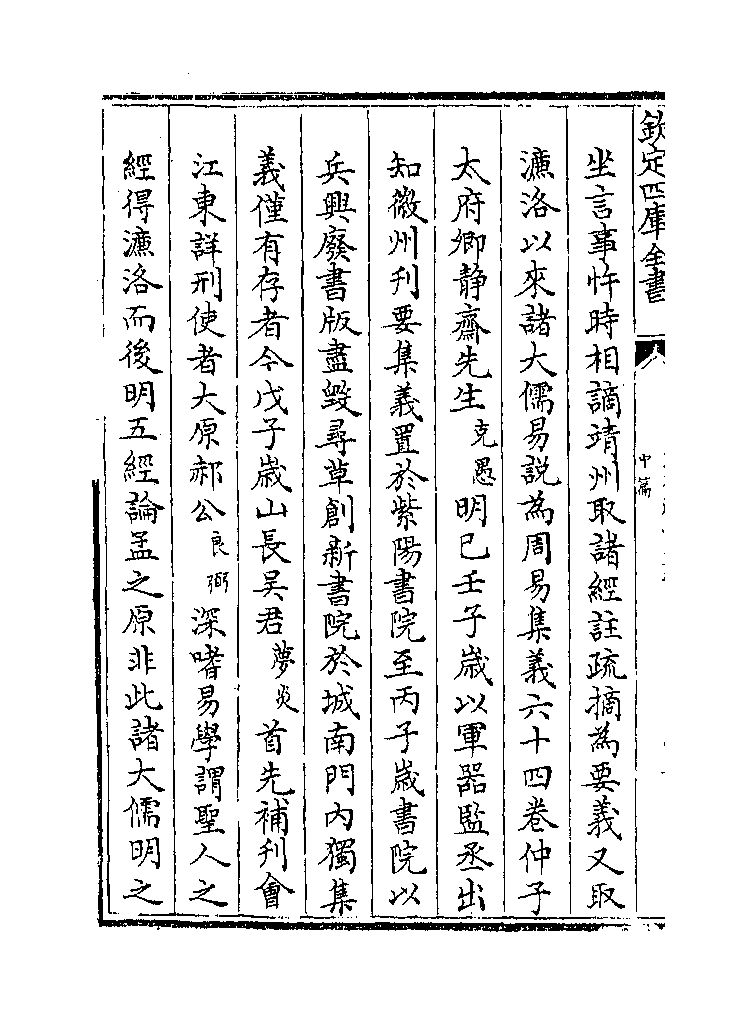 欽定四庫全書
中篇
坐言事忤時相謫靖州取諸經註疏摘為要義又取
濂洛以來諸大儒易說為周易集義六十四卷仲子
太府卿静齋先生克愚明已壬子歲以軍器監丞出
知徽州刋要集義置於紫陽書院至丙子歲書院以
兵興廢書版盡毀尋草創新書院於城南門内獨集
義僅有存者今戊子歲山長吴君夢炎首先補刋會
江東詳刑使者大原郝公良弼深嗜易學謂聖人之
經得濂洛而後明五經論孟之原非此諸大儒明之